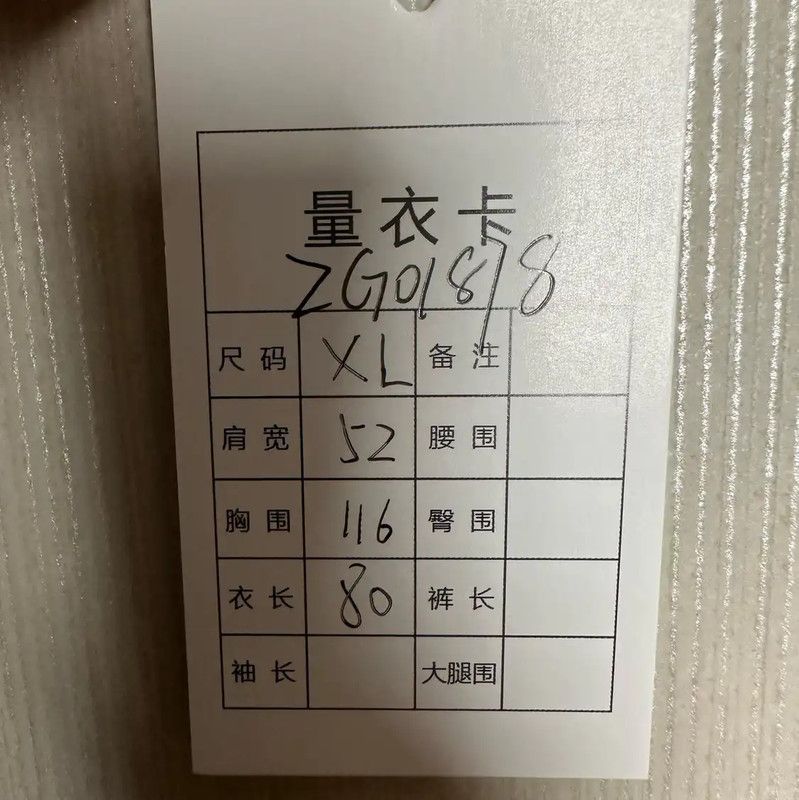 量衣卡
ZG01878
尺码 XL 备注
肩宽 52 腰围
胸围 116 臀围
衣长 80 裤长
袖长 大腿围